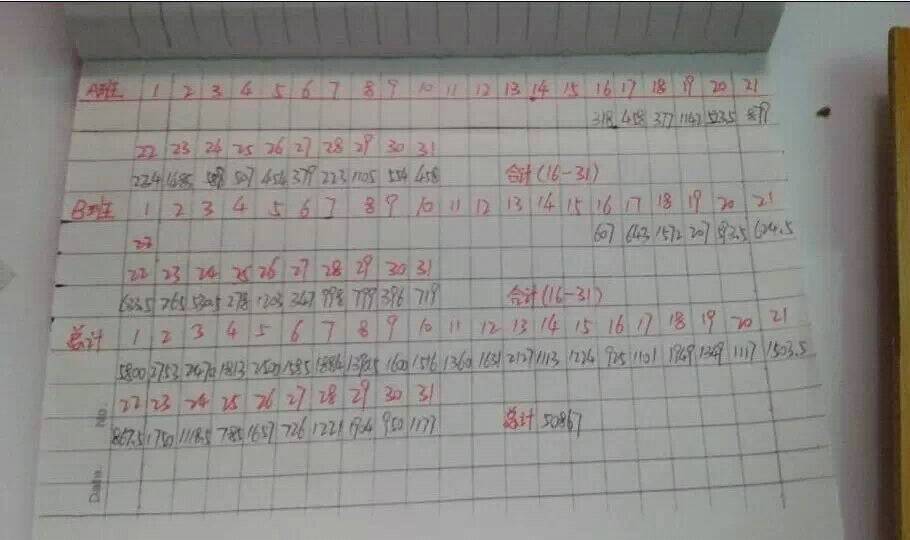 A班 1 2 3 4 5 6 7 8 9 10 11 12 13 14 15 16 17 18 19 20 21
318 458 377 1142 523.5 879
22 23 24 25 26 27 28 29 30 31
234 1485 588 507 454 379 223 1105 554 458 合计(16-31)
B班 1 2 3 4 5 6 7 8 9 10 11 12 13 14 15 16 17 18 19 20 21
22 607 643 1572 207 593.5 624.5
22 23 24 25 26 27 28 29 30 31
633.5 265 530.5 278 1203 347 998 799 396 719 合计(16-31)
总计 1 2 3 4 5 6 7 8 9 10 11 12 13 14 15 16 17 18 19 20 21
5800 2753 2470 1813 2500 1585 1884 1390.5 1600 1516 1360 1631 2127 1113 1224 925 1101 1949 1349 1117 1503.5
22 23 24 25 26 27 28 29 30 31
867.5 1750 1118.5 785 1657 726 1221 1904 950 1177 总计 50867
No.
Date.